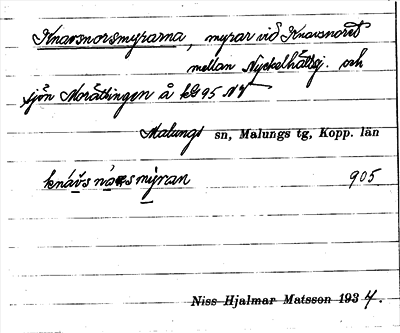 Knavsnorsmyrarna, myrar vid Knavsnoret
mellan Nyckelhättsj. och
sjön Morättingen å kbl 95 NV
Malungs sn, Malungs tg, Kopp. län
knávs nórs mýran 905
Niss Hjalmar Matsson 1934.